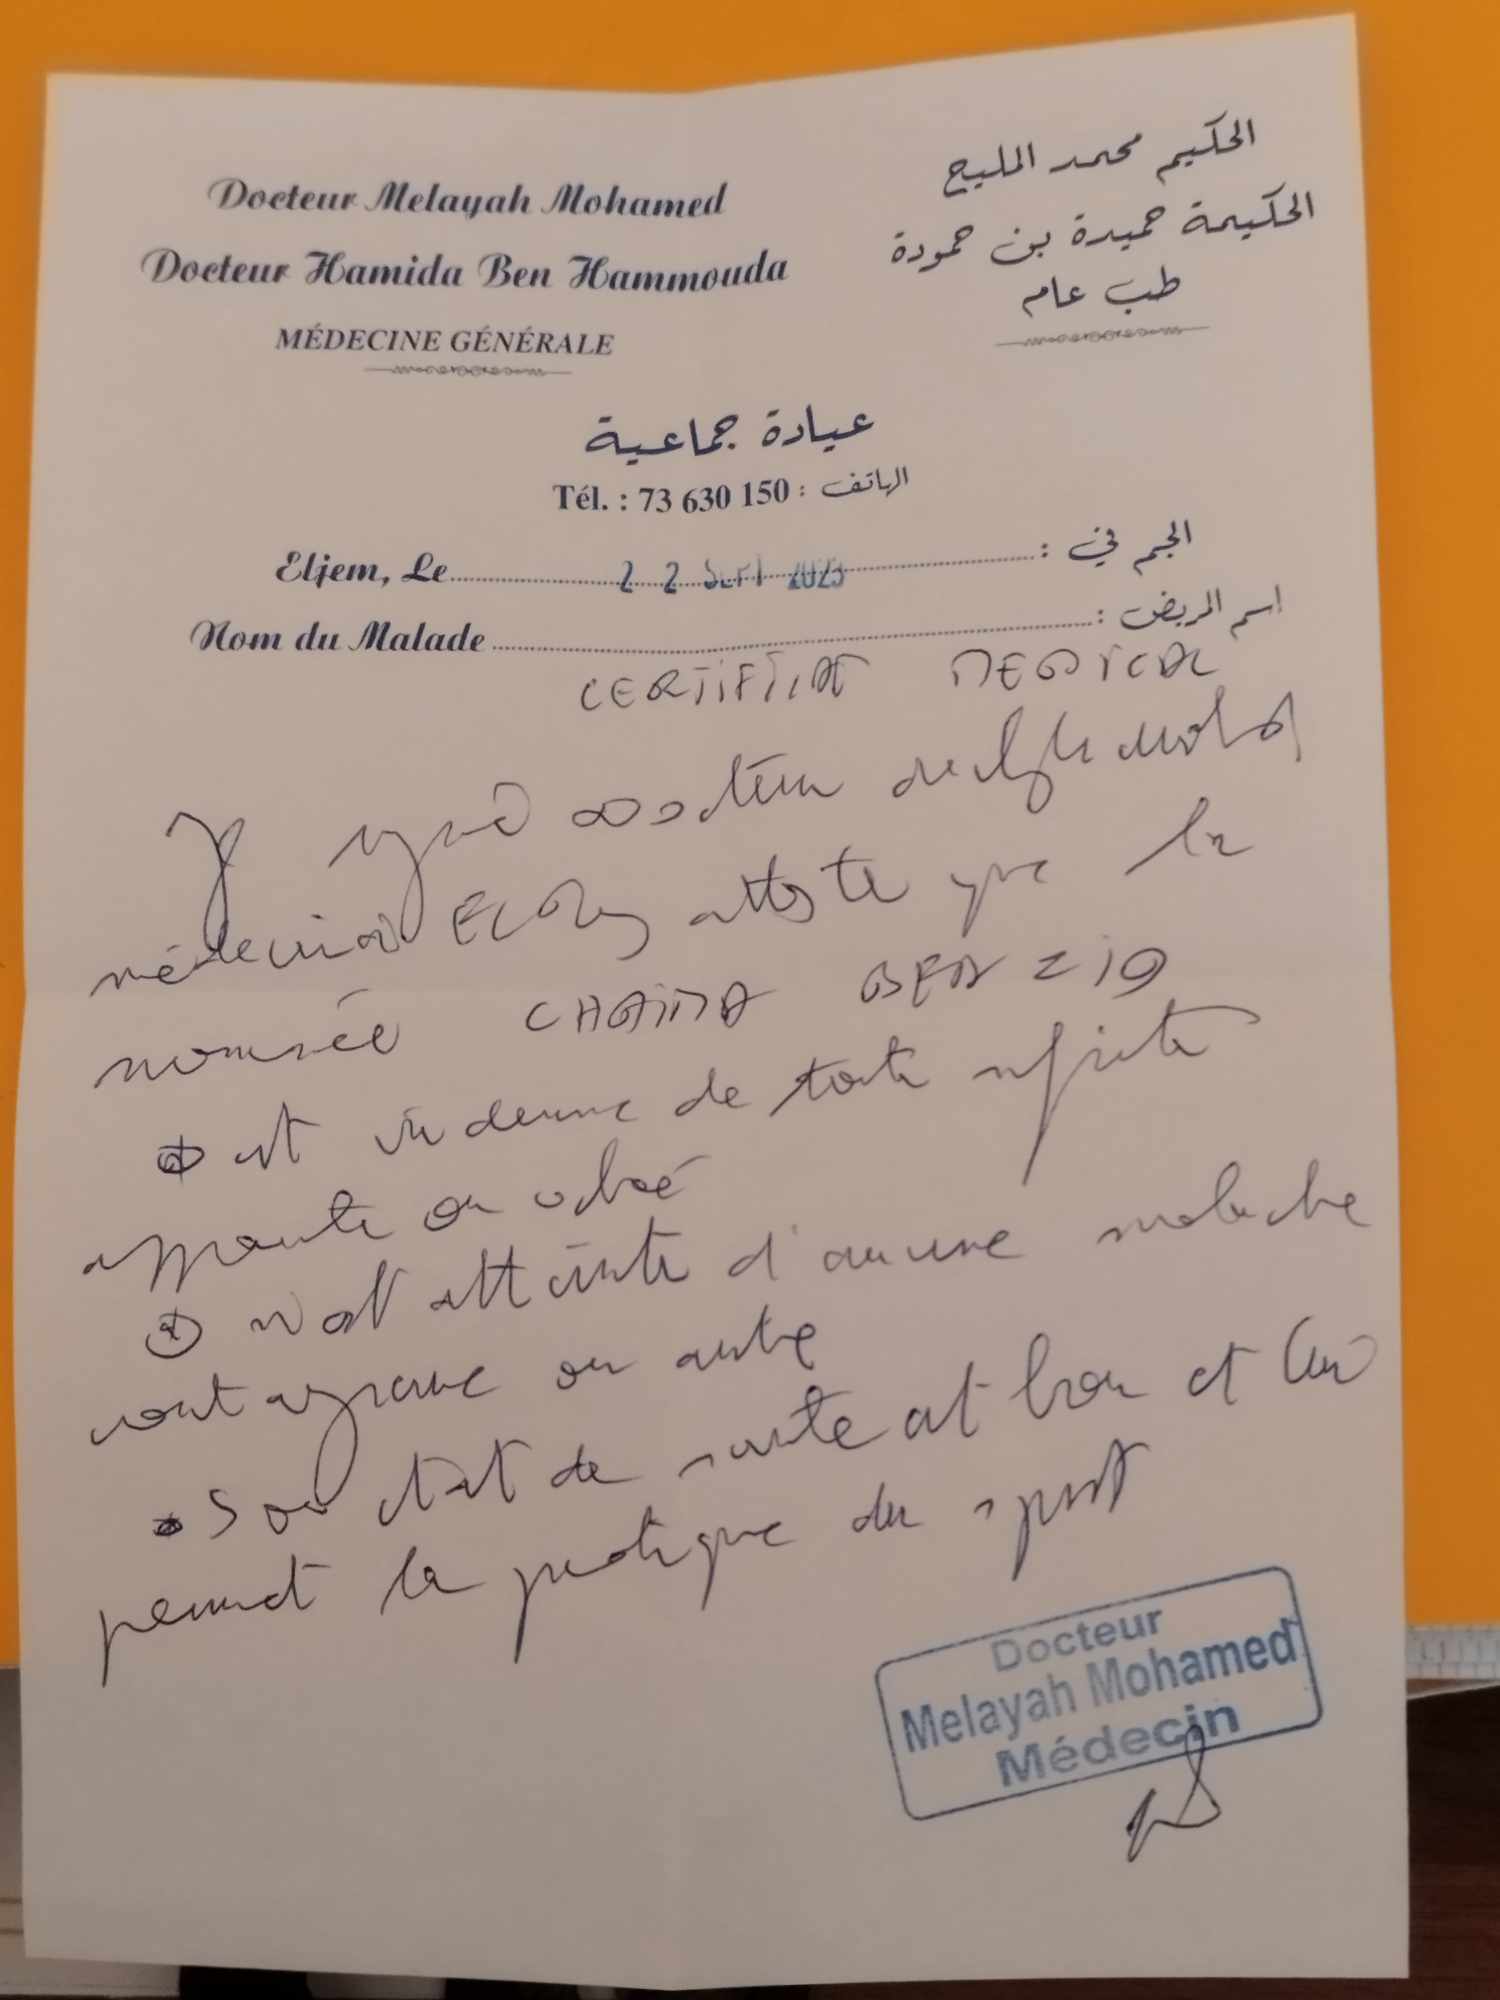 Docteur Melayah Mohamed
Docteur Hamida Ben Hammouda
MÉDECINE GÉNÉRALE
الحكيم محمد المليح
الحكيمة حميدة بن حمودة
طب عام
عيادة جماعية
Tél. : 73 630 150 : الهاتف
Eljem, Le 22 SEPT 2023 الجم في :
Nom du Malade اسم المريض :
CERTIFICAT MEDICAL
Je docteur Mohamed
médecin atteste que la
nommée CHAIMA BEN ZID
est indemne de toute infirmité
apparente ou
n'est atteinte d'aucune maladie
contagieuse ou autre
Son état de santé est bon et lui
permet la pratique du sport
Docteur
Melayah Mohamed
Médecin